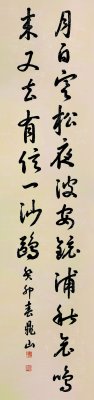 月白寒松夜波安鏡浦秋哀鳴
來又去有信一沙鷗 癸卯春 山